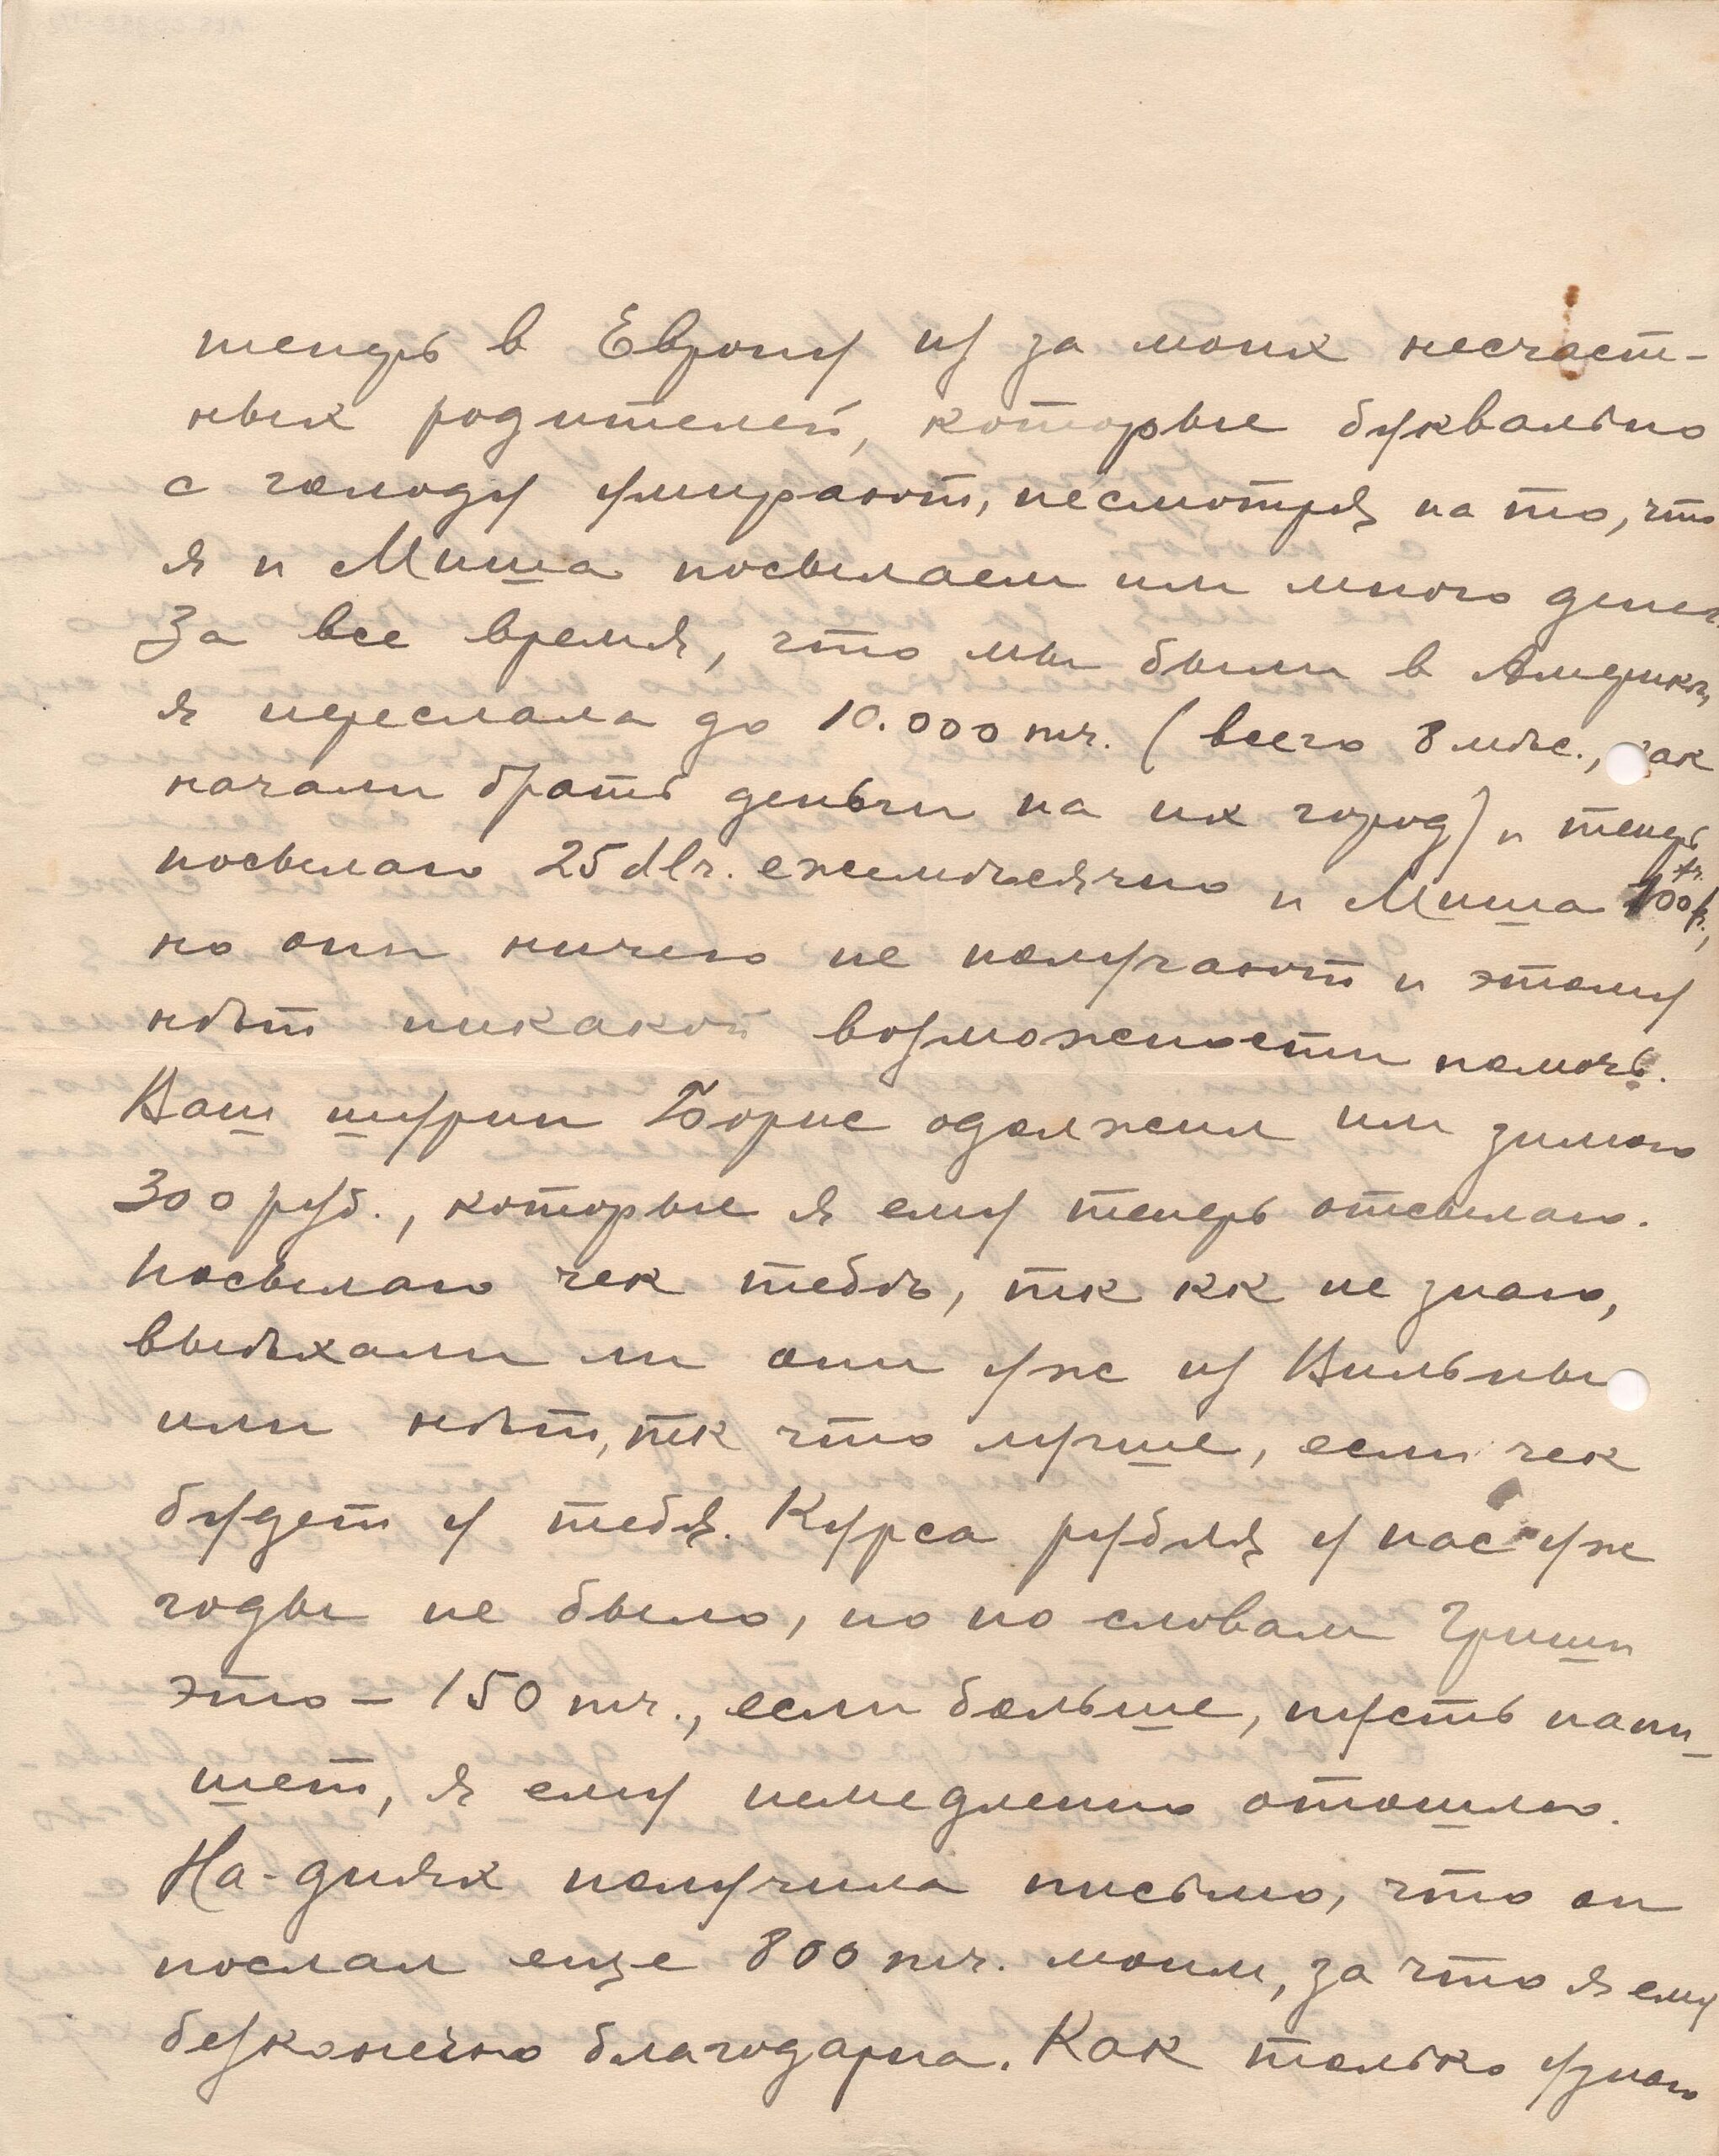 теперь в Европу из за моих несчаст-
ных родителей, которые буквально
с голоду умирают, несмотря на то, что
я и Миша посылаем им много денег.
За все время, что мы были в Америкѣ,
я переслала до 10.000 mr. (всего 8 мѣс., как
начали брать деньги на их город) и теперь
посылаю 25 dlr. ежемѣсячно и Миша 100 fr.,
но они ничего не получают и этому
нѣт никакой возможности помочь.
Ваш шурин Борис одолжил им зимою
300 руб., которые я ему теперь отсылаю.
Посылаю чек тебѣ, тк кк не знаю,
выѣхали ли они уже из Вильны
или нѣт, тк что лучше, если чек
будет у тебя. Курса рубля у нас уж
годы не было, но по словам Гриши
это – 150 mr., если больше, пусть напи-
шет, я ему немедленно отошлю.
На-днях получила письмо, что он
послал еще 800 mr. моим, за что я ему
безконечно благодарна. Как только узнаю